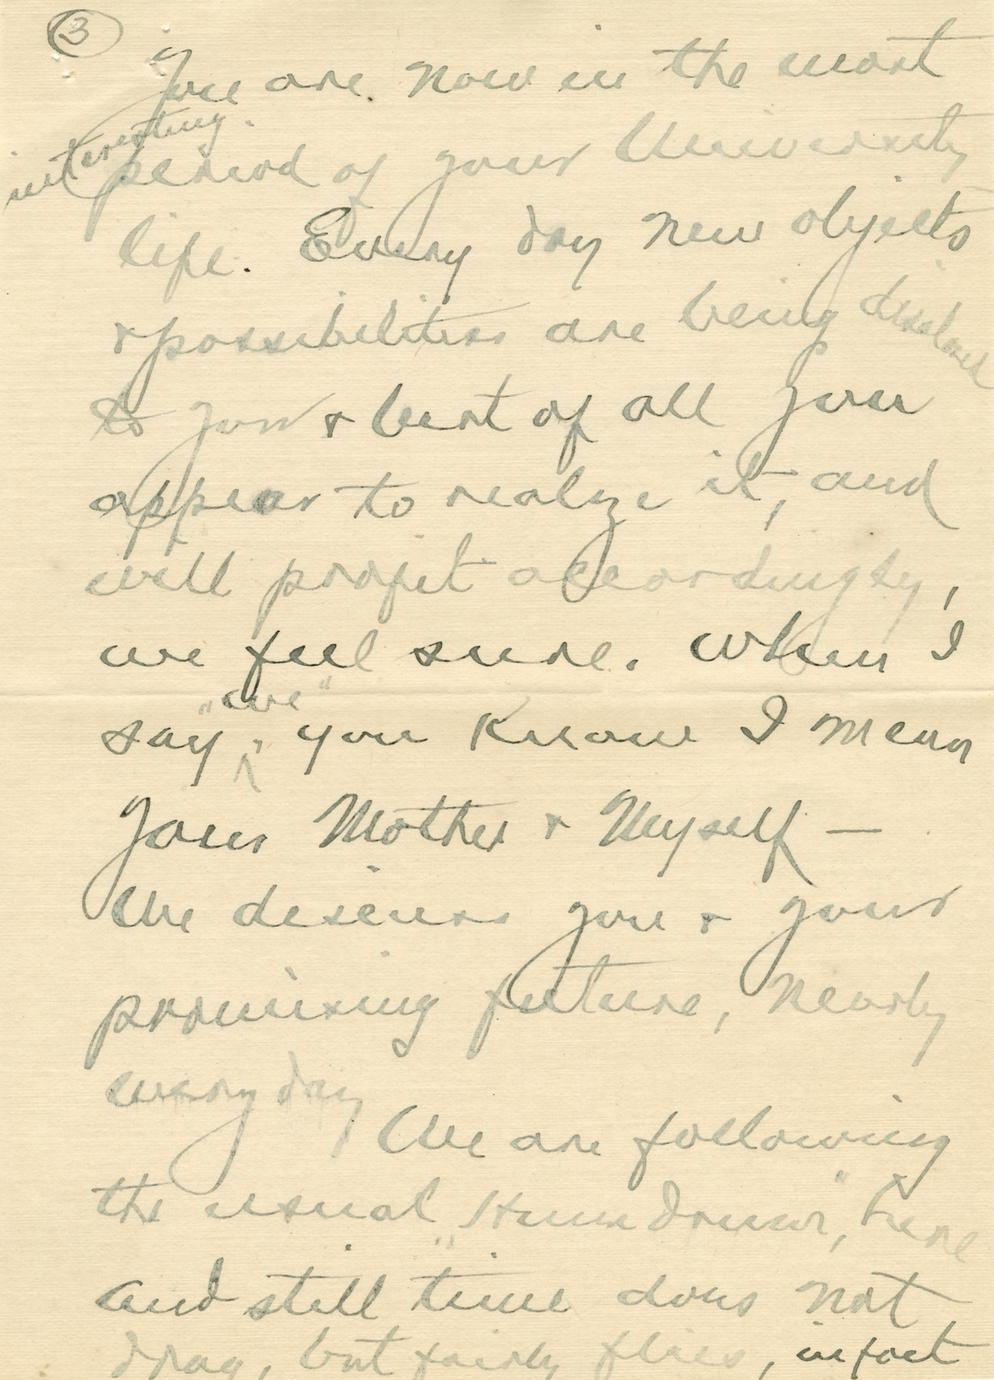 3
You are now in the most
interesting
period of your University
life. Every day new objects
& possibilities are being disclosed
to you & best of all you
appear to realize it, and
will profit accordingly,
we feel sure. When I
"we"
say, you know I mean
Your Mother & Myself —
We discuss you & your
promising future, nearly
every day
We are following
the usual "Hum drum", here
and still time does not
drag, but fairly flies, in fact